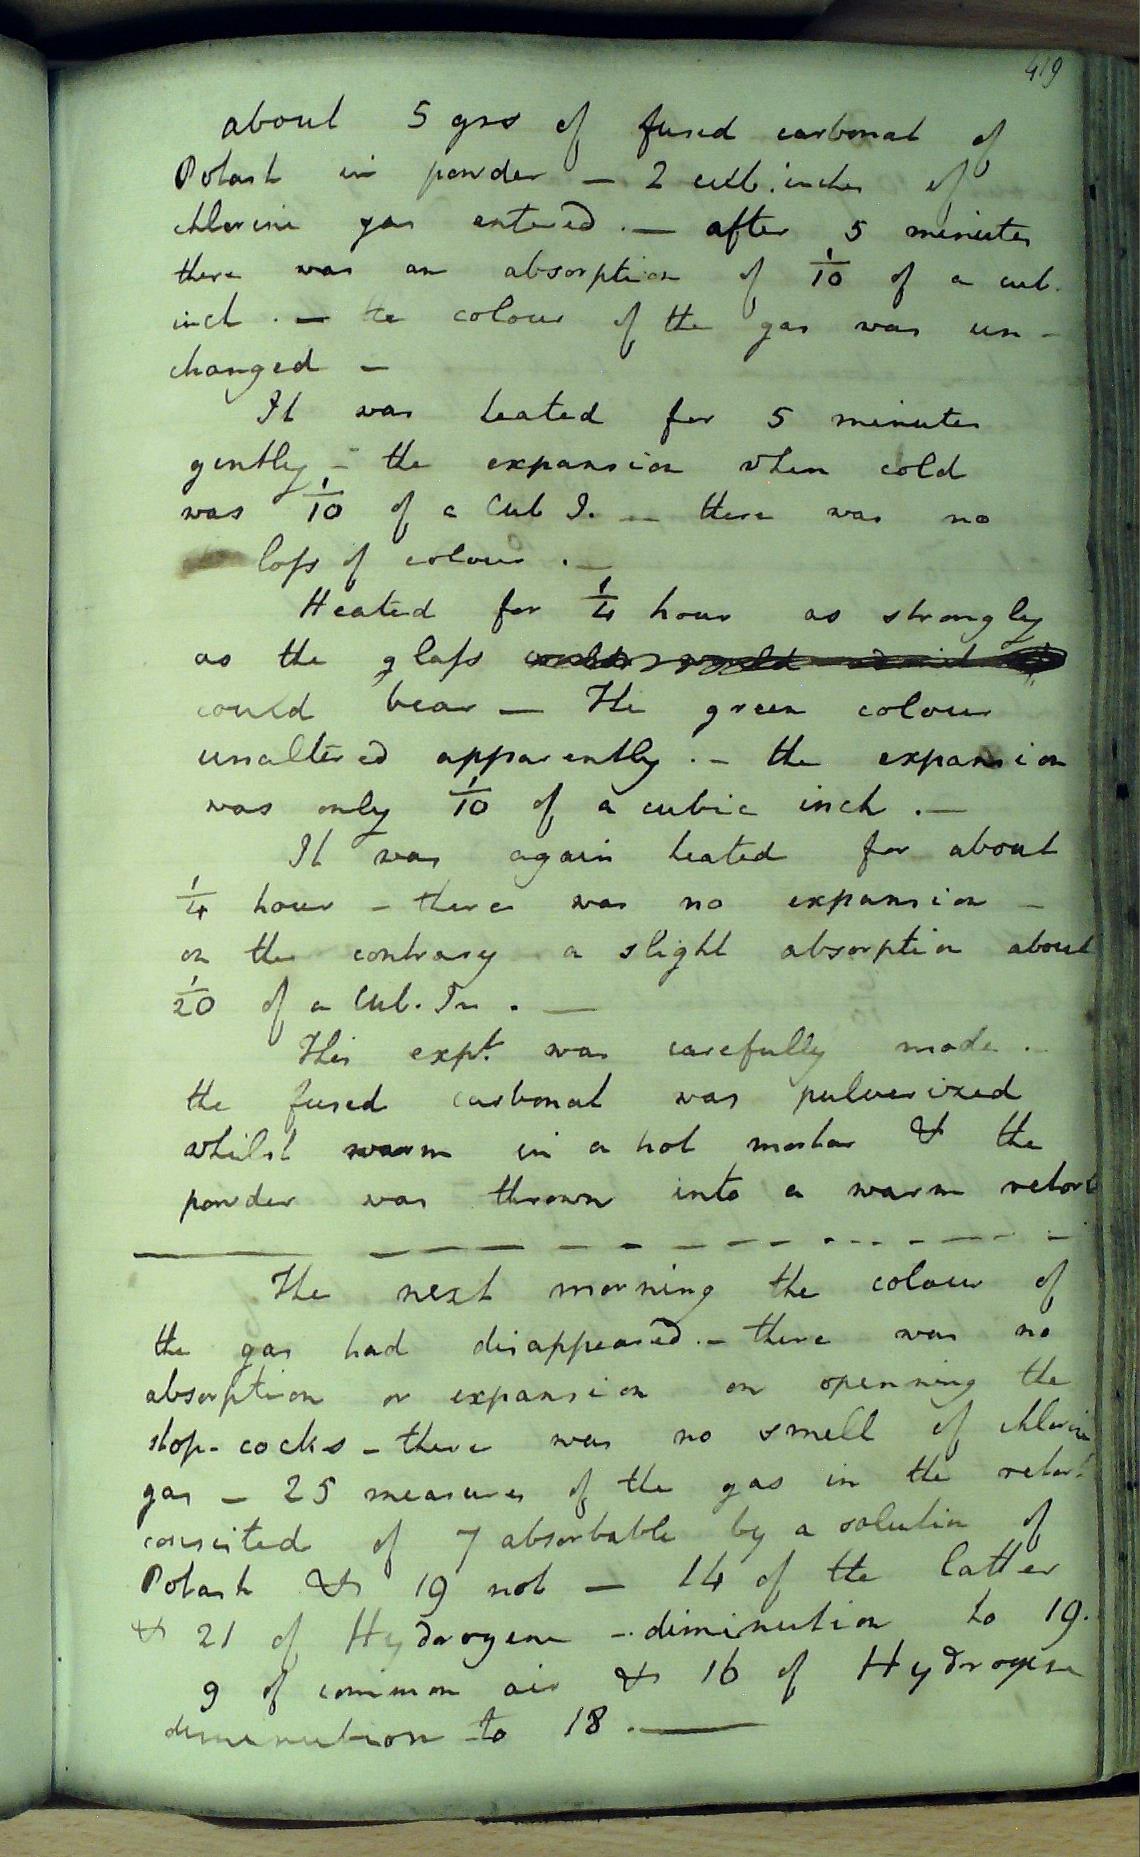 419
about 5 grs of fused carbonat of
Potash in powder — 2 cub. inches of
chlorine gas entered. — after 5 minutes
there was an absorption of 1/10 of a cub.
inch. — the colour of the gas was un-
changed —
It was heated for 5 minutes
gently - the expansion when cold
was 1/10 of a Cub I. — there was no
loſs of colour. —
Heated for 1/4 hour as strongly
as the glaſs
could bear — The green colour
unaltered apparently. - the expansion
was only 1/10 of a cubic inch. —
It was again heated for about
1/4 hour - there was no expansion -
on the contrary a slight absorption about
1/20 of a Cub. In. —
This expt. was carefully made.
the fused carbonat was pulverized
whilst warm in a hot mortar & the
powder was thrown into a warm retort
The next morning the colour of
the gas had disappeared. - there was no
absorption or expansion on openning the
stop-cocks - there was no smell of chlorine
gas — 25 measures of the gas in the retort
consisted of 7 absorbable by a solution of
Potash & 19 not — 14 of the latter
& 21 of Hydrogene - diminution to 19.
9 of common air & 16 of Hydrogene
diminution to 18. —